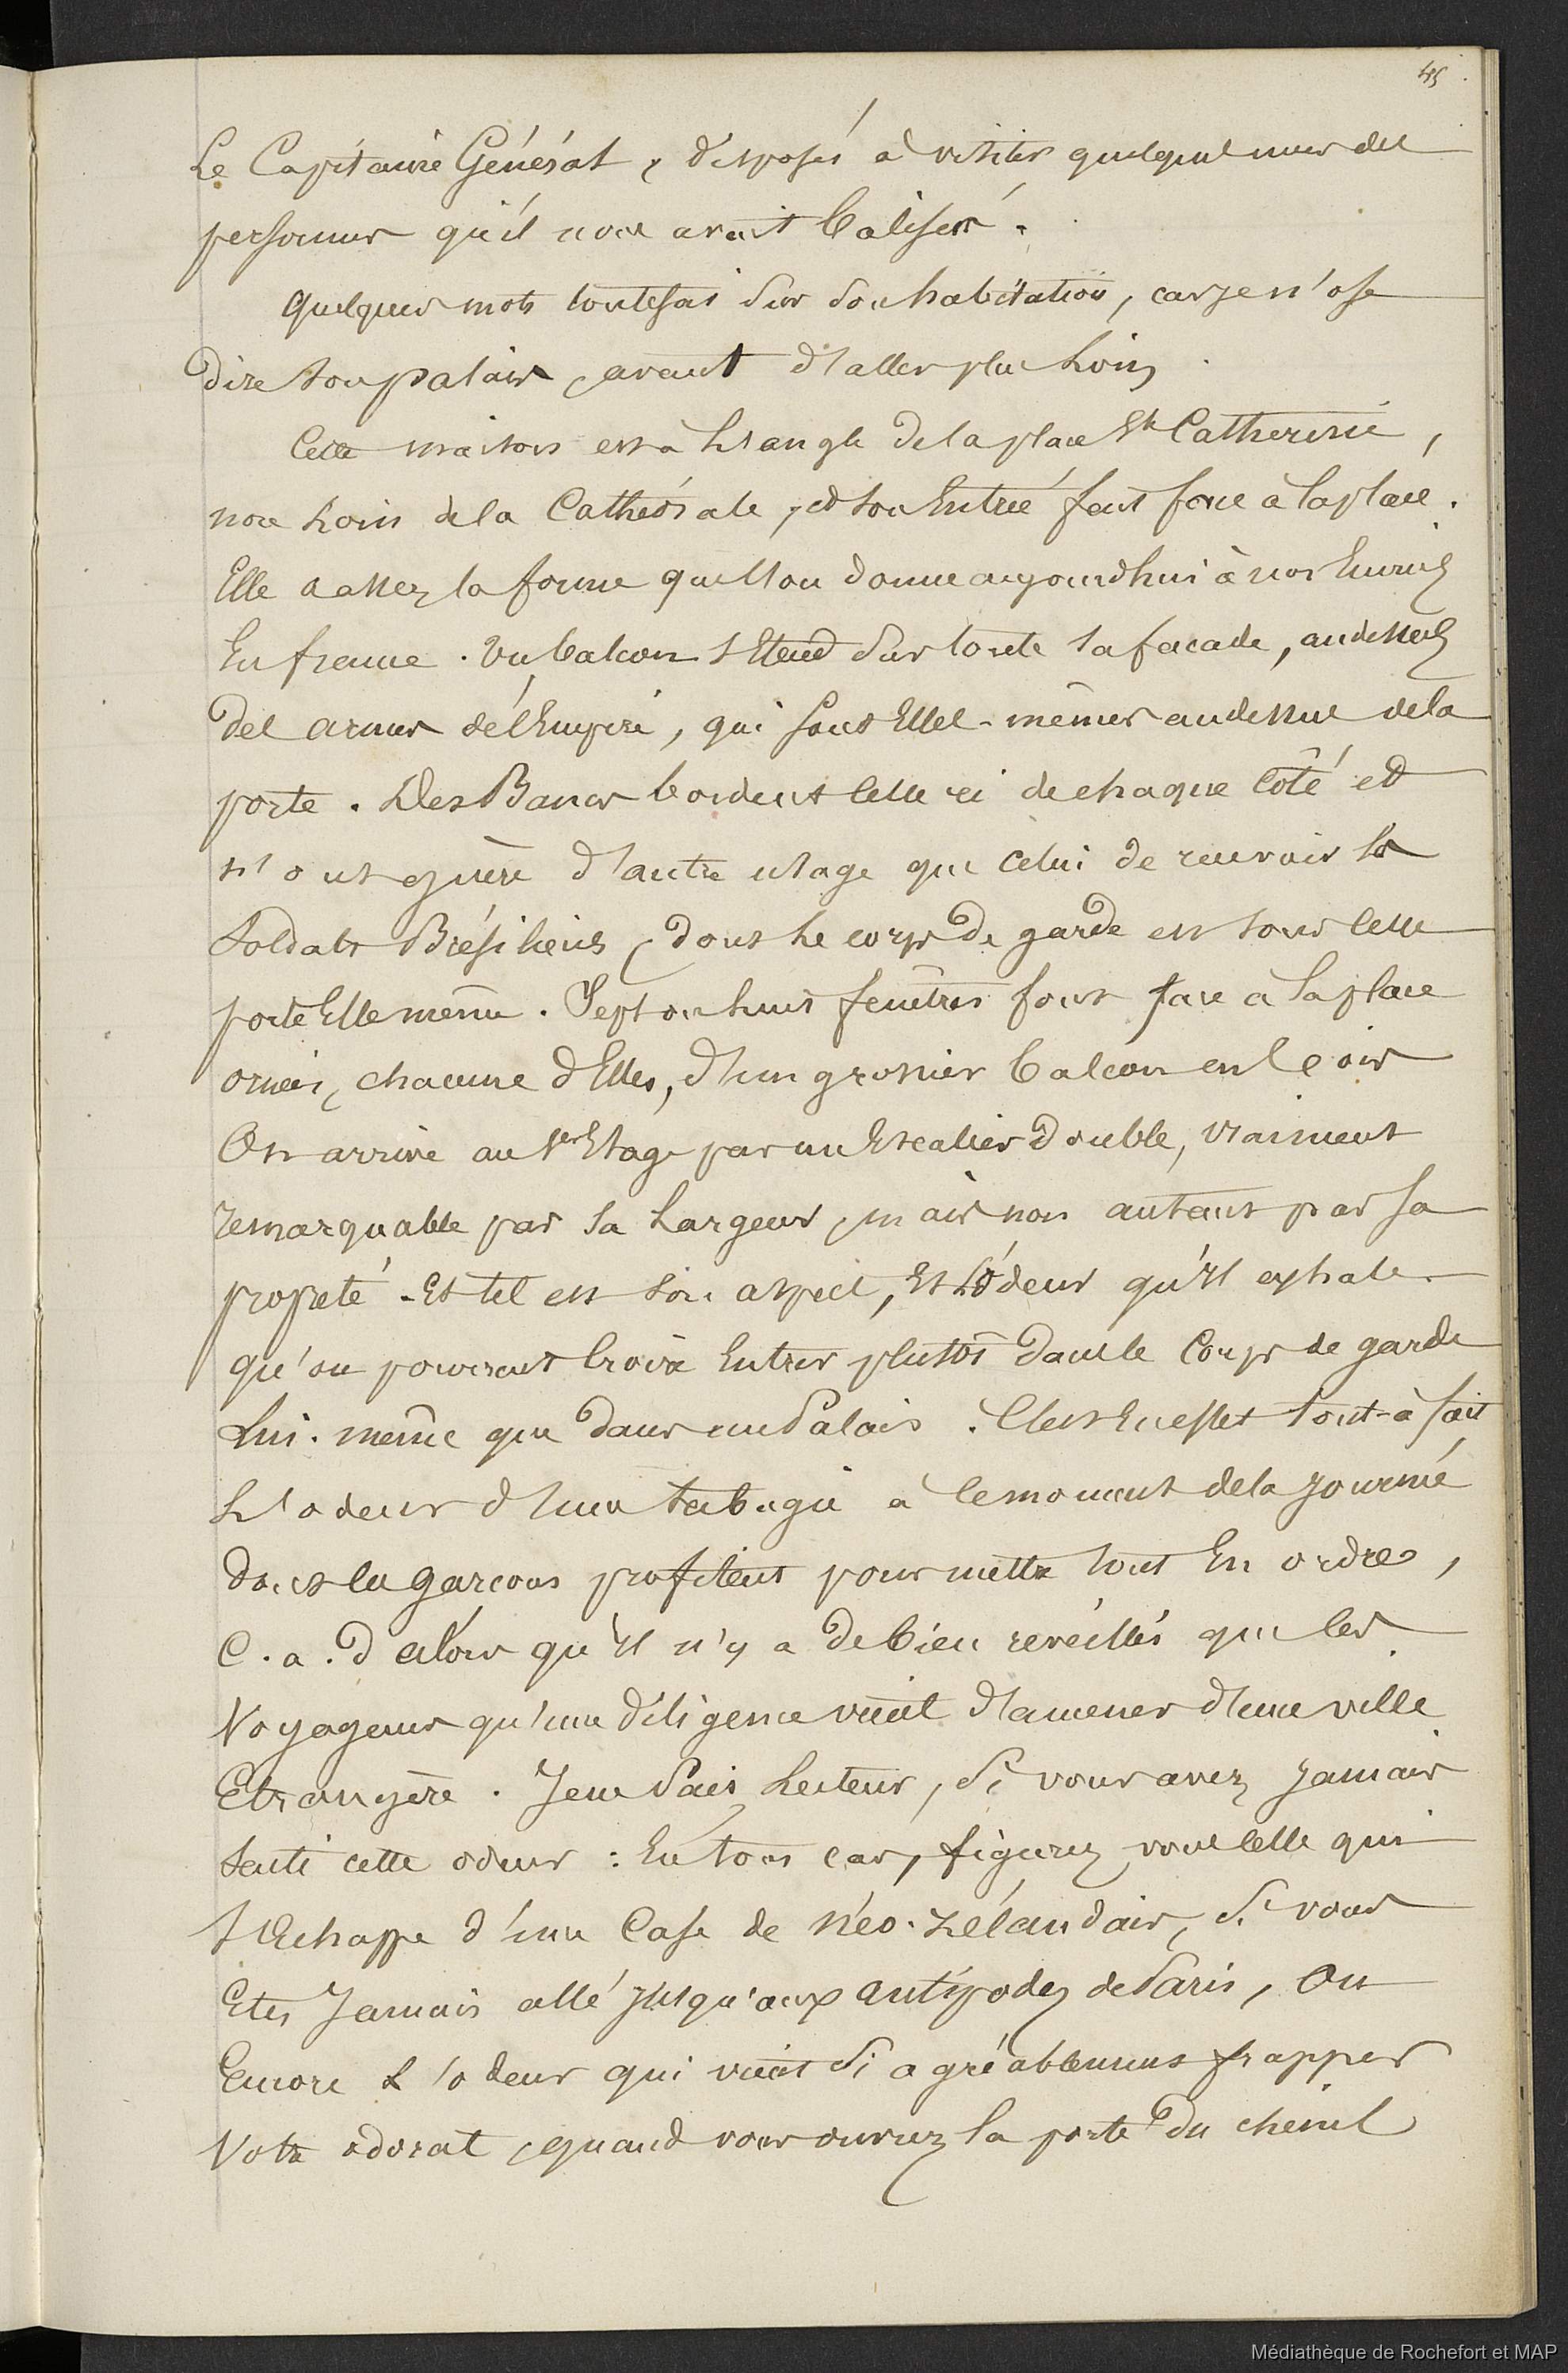 45
Le Capitaine Général, disposés à visiter quelques unes des
personnes qu'il nous avait
Quelques mots toutefois sur son habitation, car je n'ose
dire son palais, avant d'aller plus loin
Cette maison est à l'angle de la place Ste Catherine,
non loin de la Cathédrale, et son Entrée fait face à la place.
Elle a assez la forme que l'on donne aujourdhui à nos
En france. Un balcon s'Etend sur toute sa facade, au dessus
des armes de l'Empire, qui sont Elles-mêmes au dessus de la
porte. Des Bancs bordent celle ci de chaque côté et
n'ont guère d'autre usage que celui de recevoir les
Soldats Brésiliens, dont le corps de garde est sous cette
porte Elle même. Sept ou huit fenêtres font face à la place
ornées, chacune d'Elles, d'un grossier balcon en bois
On arrive au 1er Etage par un Escalier double, vraiment
remarquable par sa largeur, mais non autant par sa
propreté. Et tel est son aspect, Et l'odeur qu'il exhale
qu'on pourrait croire Entrer plutôt dans le Corps de garde
lui-même que dans un Palais. C'est En effet tout-à fait
L'odeur d'une tabagie à ce moment de la journée
dont les garcons profitent pour mettre tout En ordre,
C.a.d alors qu'il n'y a de bien réveillés que les
Voyageurs qu'une diligence vient d'amener d'une ville
Etrangère. Je ne sais, Lecteur, si vous avez jamais
senti cette odeur : En tous cas, figurez vous celle qui
s'Echappe d'une Case de Néo-zélandais, si vous
Etes jamais allé jusqu'aux antipodes de Paris, Ou
Encore L'odeur qui vient si agréablement frapper
Votre odorat, quand vous ouvrez la porte du chenil
Médiathèque de Rochefort et MAP